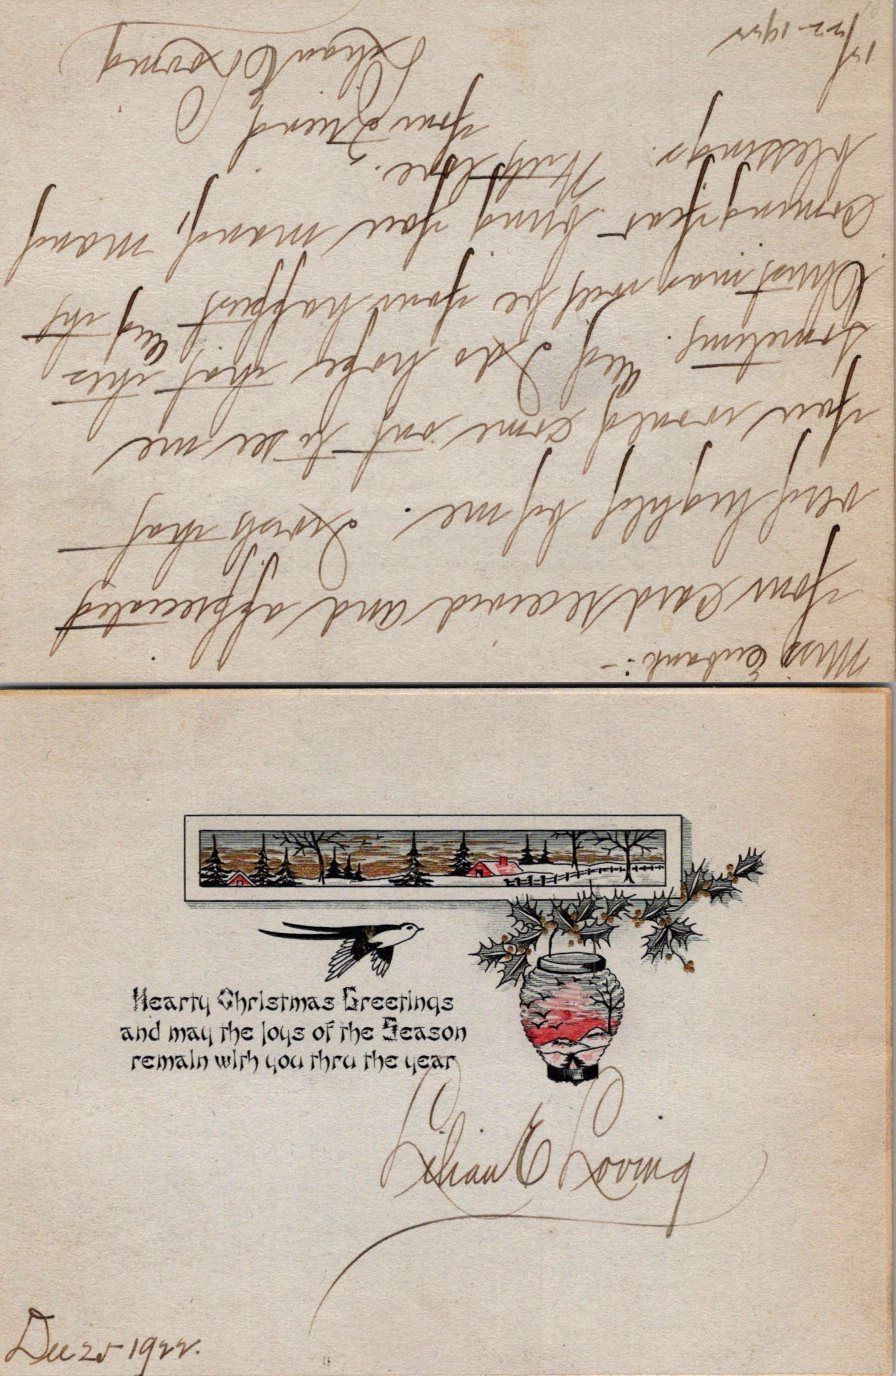 Miss Eubank:-
Your card received and appreciated
very highly by me. I wish that
you would come out to see me
sometime. And I do hope that this
Christmas will be your happiest And the
coming year bring you many, many
blessings. With love,
Your Friend
Lilian E Loving
12/22-1922
Hearty Christmas Greetings
and may the Joys of the Season
remain with you thru the year
Lilian E Loving
Dec 25-1922.